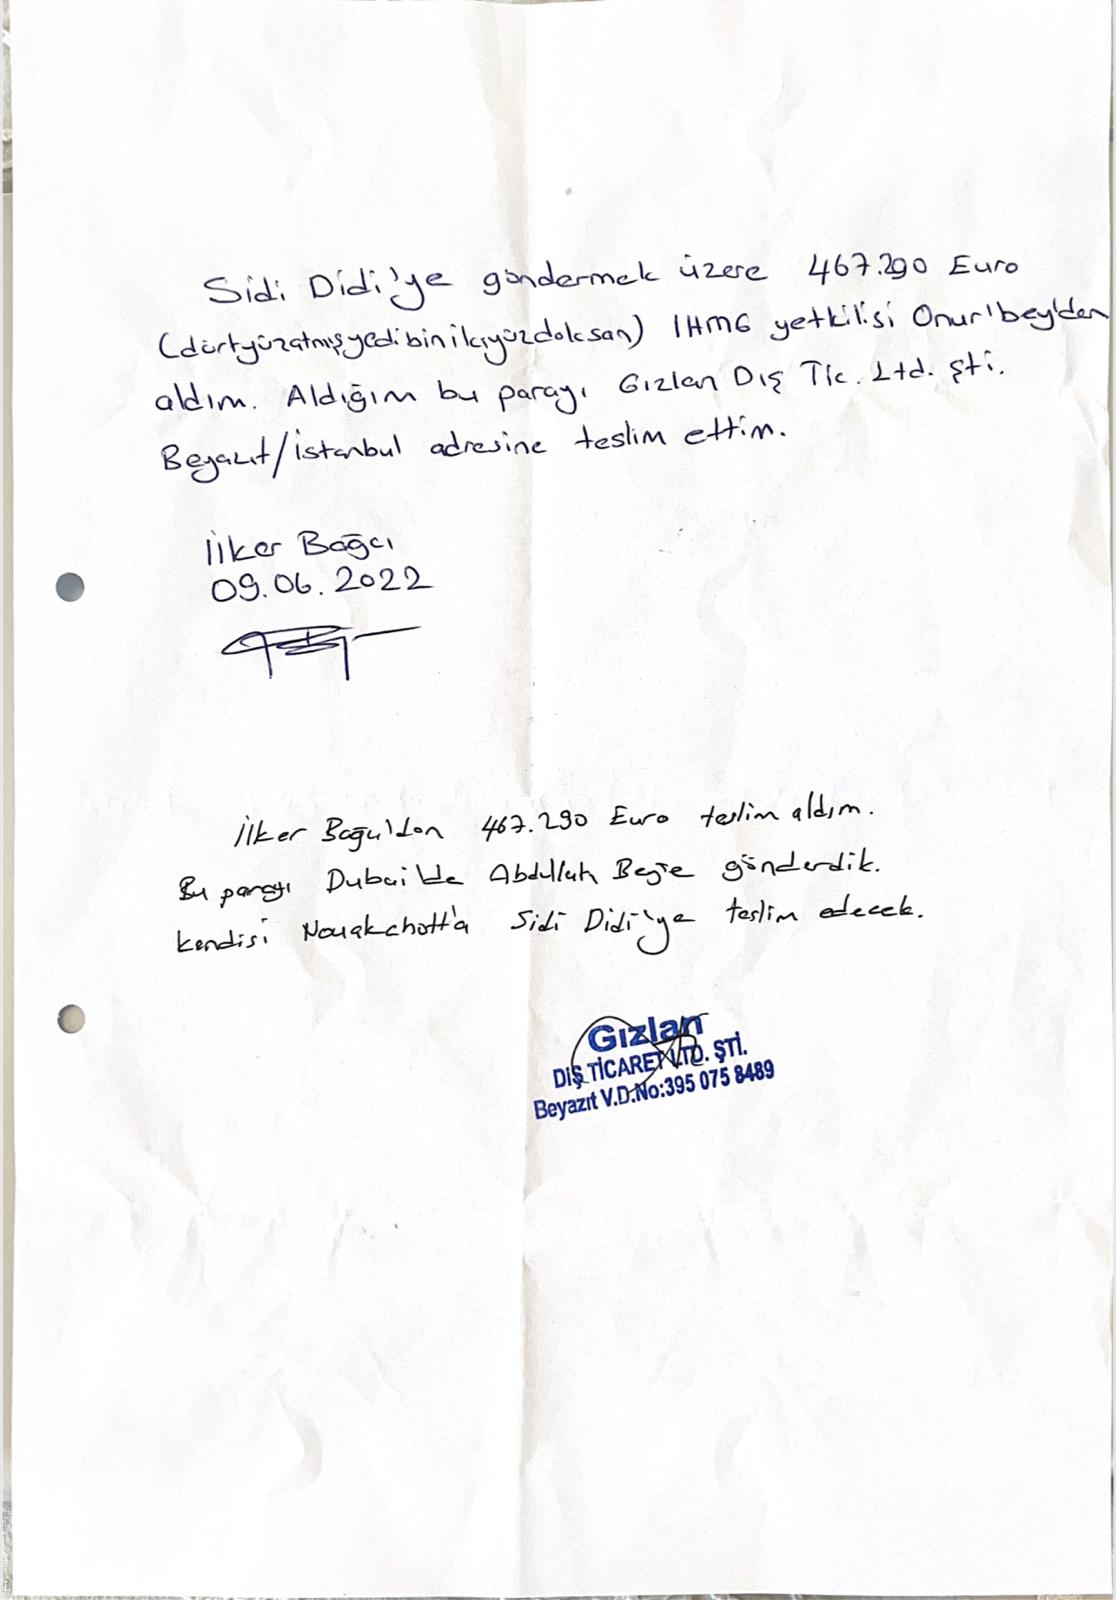 Sidi Didi'ye göndermek üzere 467.290 Euro
(dörtyüzatmışyedibinikiyüzdoksan) IHMG yetkilisi Onur bey'den
aldım. Aldığım bu parayı Gızlan Dış Tic. Ltd. Şti.
Beyazıt/İstanbul adresine teslim ettim.
İlker Bağcı
09.06.2022
İlker Bağcı'dan 467.290 Euro teslim aldım.
Bu parayı Dubai'de Abdullah Beye gönderdik.
kendisi Nouakchott'a Sidi Didi'ye teslim edecek.
Gızlan
DIŞ TİCARET LTD. ŞTİ.
Beyazıt V.D.No:395 075 8489